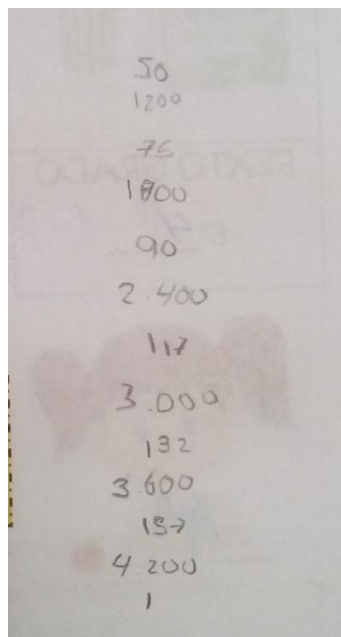 50
1200
75
1800
90
2.400
117
3.000
132
3.600
157
4.200
1
SEXTO GRADO